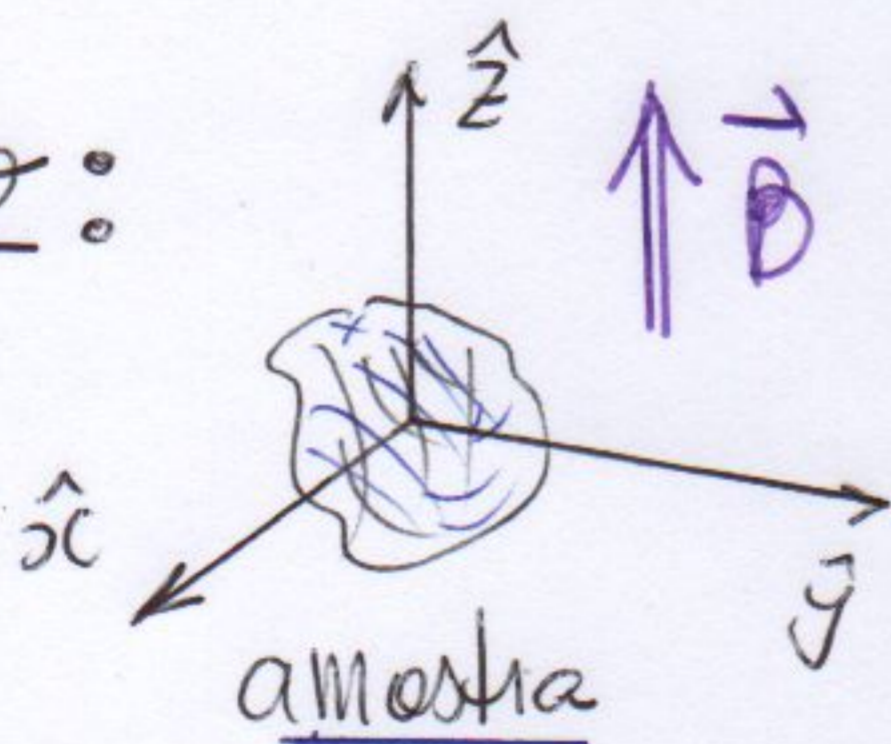 ẑ
B⃗
x̂
ŷ
amostra